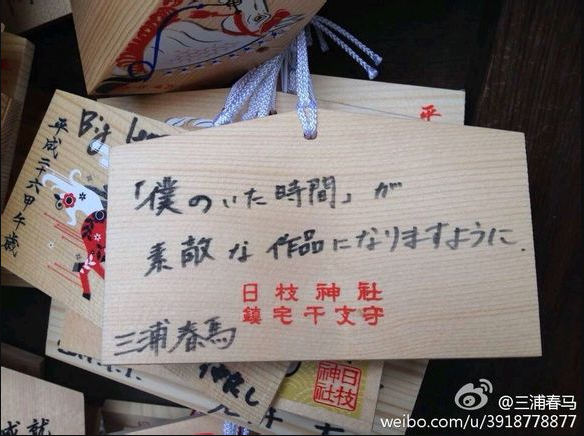 「僕のいた時間」が
素敵な作品になりますように.
日枝神社
鎮宅干支守
三浦春馬
平成二十六甲午歳
Big
平
日枝
神社
成
龍
@三浦春马
weibo.com/u/3918778877